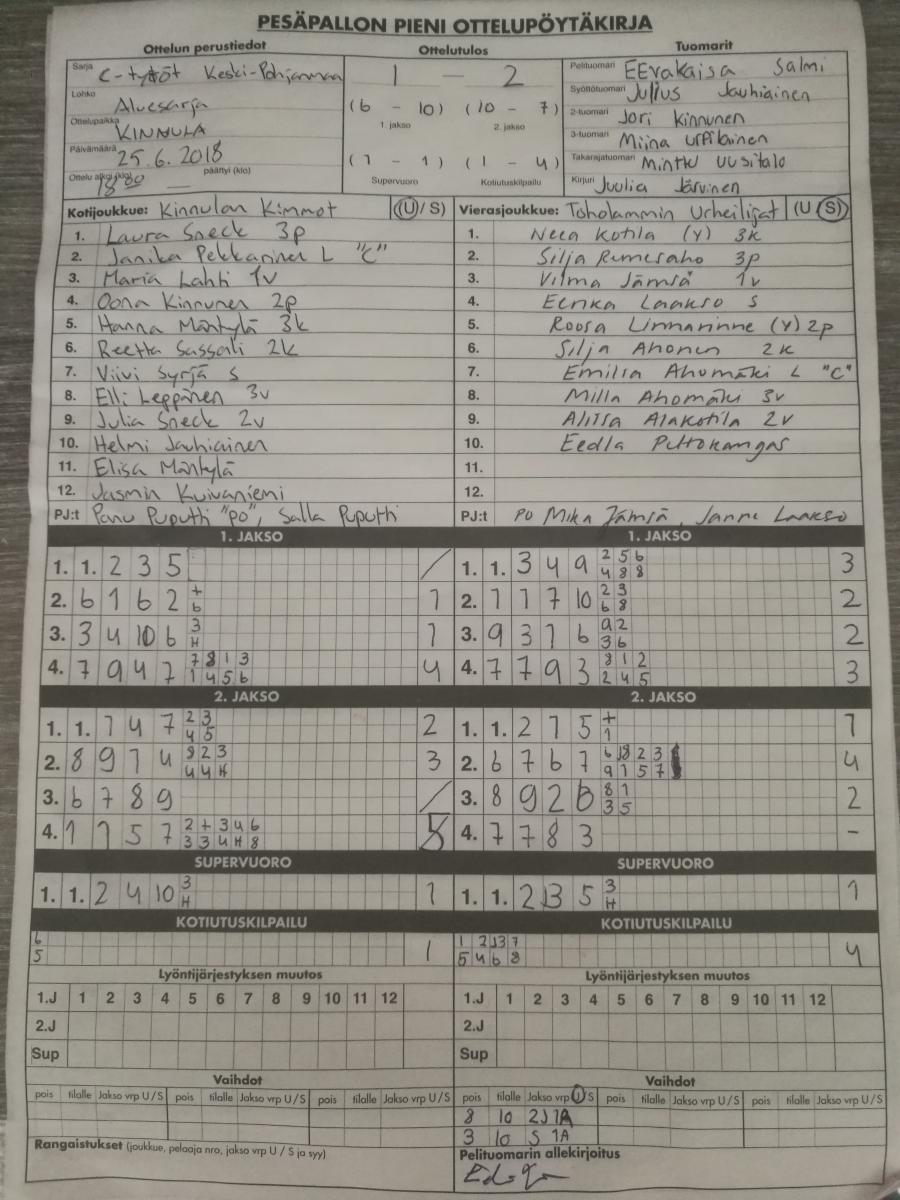 PESÄPALLON PIENI OTTELUPÖYTÄKIRJA
Ottelun perustiedot Ottelutulos Tuomarit
Sarja C-tytöt Keski-Pohjanmaa 1 — 2 Pelituomari EEvakaisa Salmi
Lohko Aluesarja (6 - 10) (10 - 7) Syöttötuomari Julius Jauhiainen
Ottelupaikka KINNULA 1. jakso 2. jakso 2-tuomari Jori Kinnunen
Päivämäärä 25.6.2018 3-tuomari Miina Urpilainen
Ottelu alkoi (klo) päättyi (klo) — (1 - 1) (1 - 4) Takarajatuomari Minttu Uusitalo
Supervuoro Kotiutuskilpailu Kirjuri Juulia Järvinen
Kotijoukkue: Kinnulan Kimmot (U / S) Vierasjoukkue: Toholammin Urheilijat (U / S)
1. Laura Sneck 3p 1. Neea Kotila (Y) 3k
2. Janika Pekkarinen L "C" 2. Silja Rumesaho 3p
3. Maria Lahti 1v 3. Vilma Jämsä 1v
4. Oona Kinnunen 2p 4. Eerika Laakso S
5. Hanna Mäntylä 3k 5. Roosa Linnarinne (Y) 2p
6. Reetta Sassali 2k 6. Silja Ahonen 2k
7. Viivi Syrjä S 7. Emilia Ahomäki L "C"
8. Elli Leppänen 3v 8. Milla Ahomäki 3v
9. Julia Sneck 2v 9. Aliisa Alakotila 2v
10. Helmi Jauhiainen 10. Eedla Peltokangas
11. Elisa Mäntylä 11.
12. Jasmin Kuivaniemi 12.
PJ:t Panu Puputti "PO", Salla Puputti PJ:t PO Mika Jämsä, Janne Laakso
1. JAKSO 1. JAKSO
1. 1. 2 3 5 / 1. 1. 3 4 9 2 5 6 3
4 8 8
2. 6 1 6 2 + 1 2. 1 1 7 10 2 3 2
6 6 8
3. 3 4 10 6 3 1 3. 9 3 1 6 9 2 2
H 3 6
4. 7 9 4 7 7 8 1 3 4 4. 7 7 9 3 8 1 2 3
1 4 5 6 2 4 5
2. JAKSO 2. JAKSO
1. 1. 1 4 7 2 3 2 1. 1. 2 1 5 + 1
4 5 1
2. 8 9 1 4 9 2 3 3 2. 6 7 6 7 6 2 3 4
4 4 H 9 1 5 7
3. 6 7 8 9 / 3. 8 9 2 6 8 1 2
3 5
4. 1 1 5 7 2 + 3 4 6 5 4. 7 7 8 3 -
3 3 4 H 8
SUPERVUORO SUPERVUORO
1. 1. 2 4 10 3 1 1. 1. 2 3 5 3 1
H H
KOTIUTUSKILPAILU KOTIUTUSKILPAILU
6 1 1 2 3 7 4
5 5 4 6 8
Lyöntijärjestyksen muutos Lyöntijärjestyksen muutos
1.J 1 2 3 4 5 6 7 8 9 10 11 12 1.J 1 2 3 4 5 6 7 8 9 10 11 12
2.J 2.J
Sup Sup
Vaihdot Vaihdot
pois tilalle Jakso vrp U / S pois tilalle Jakso vrp U / S pois tilalle Jakso vrp U / S pois tilalle Jakso vrp U / S pois tilalle Jakso vrp U / S pois tilalle Jakso vrp U / S
8 10 2J 1A
3 10 S 1A
Rangaistukset (joukkue, pelaaja nro, jakso vrp U / S ja syy) Pelituomarin allekirjoitus